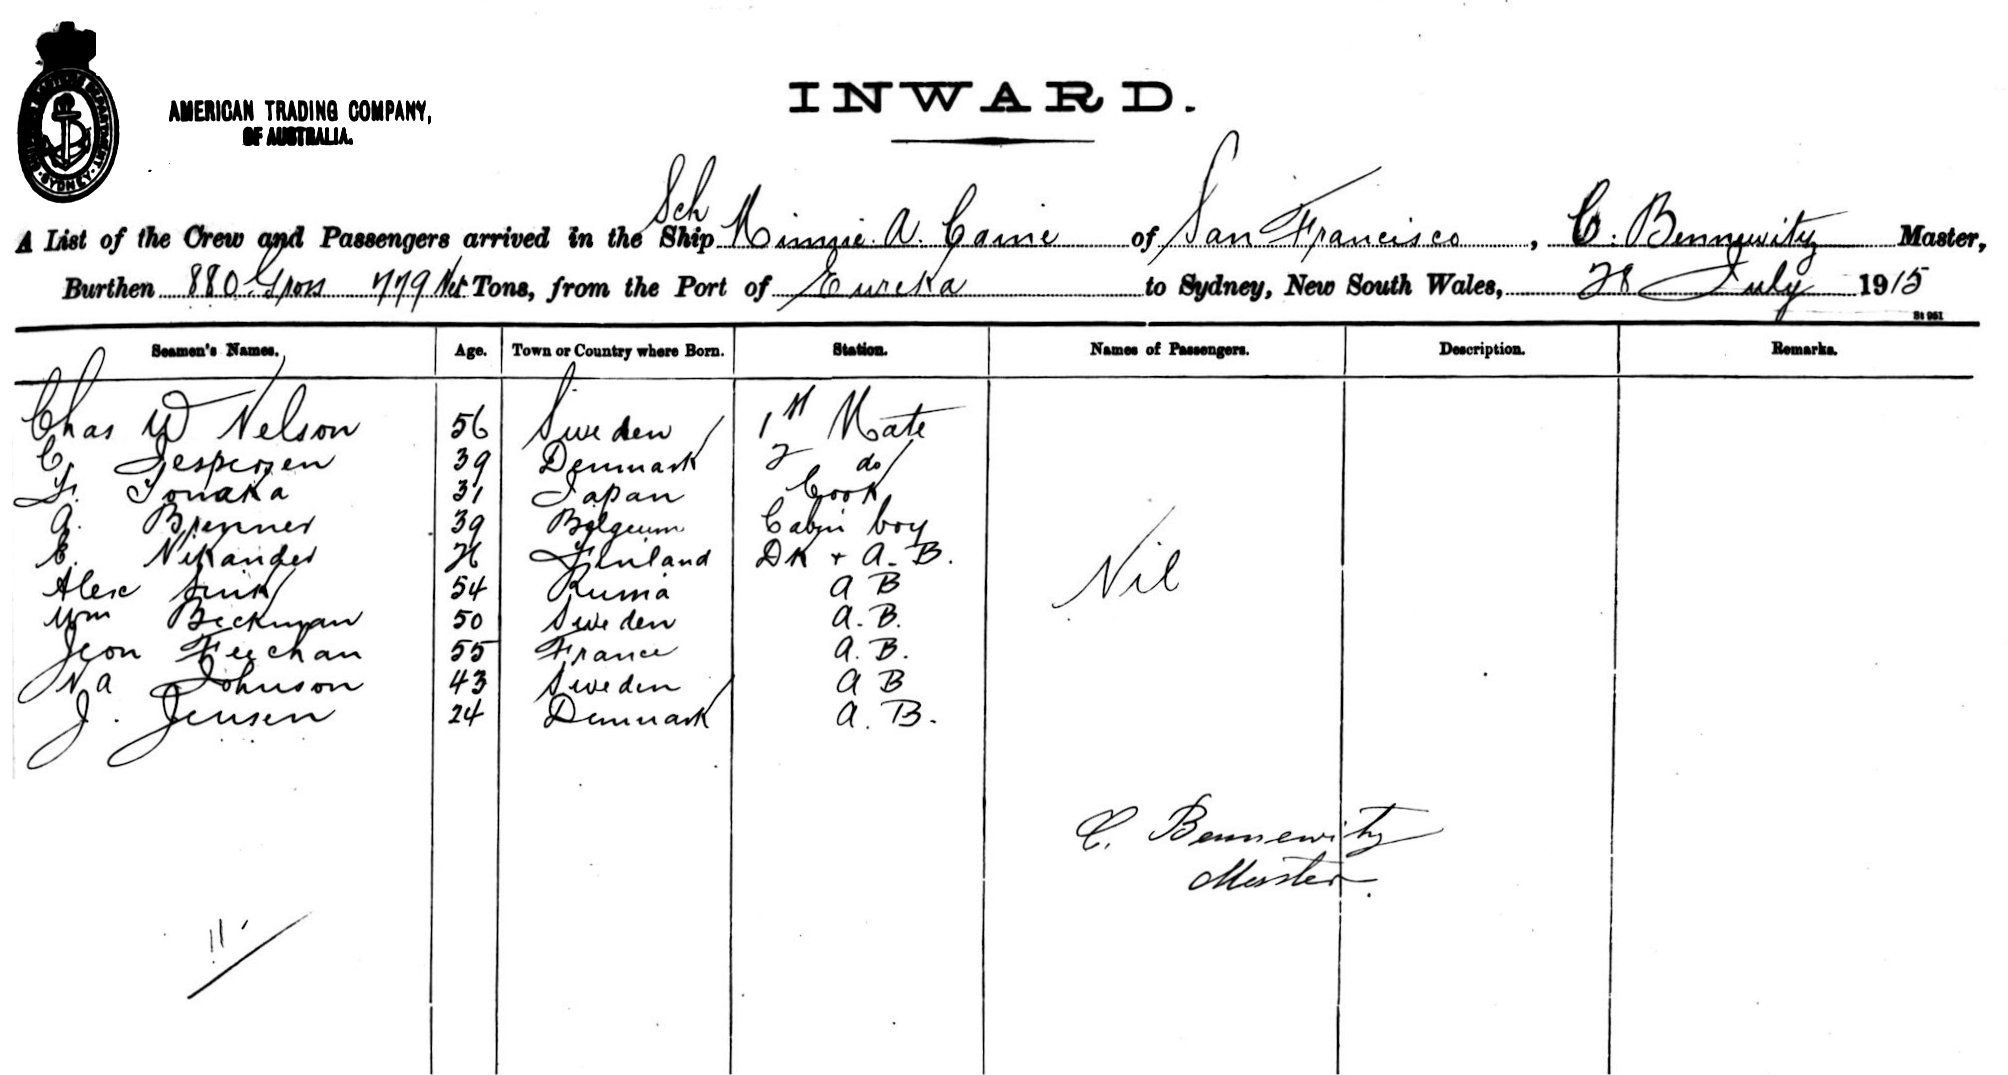 SHIPPING MASTERS DEPARTMENT SYDNEY
AMERICAN TRADING COMPANY,
OF AUSTRALIA.
INWARD.
A List of the Crew and Passengers arrived in the Sch Ship Minnie A. Caine of San Francisco, C. Bennewitz Master,
Burthen 880 Gross 779 Net Tons, from the Port of Eureka to Sydney, New South Wales, 28 July 1915
St 951
Seamen's Names. Age. Town or Country where Born. Station. Names of Passengers. Description. Remarks.
Chas W Nelson 56 Sweden 1st Mate
C. Jespersen 39 Denmark 2 do
Y. Tonaka 31 Japan Cook
A. Brenner 39 Belgium Cabin boy
E. Nikander 26 Finland DK + A.B.
Alex Sink 54 Russia A B
Wm Beckman 50 Sweden A.B.
Jean Feechan 55 France A.B.
N A Johnson 43 Sweden A B
J. Jensen 24 Denmark A.B.
Nil
C. Bennewitz
Master.
11.